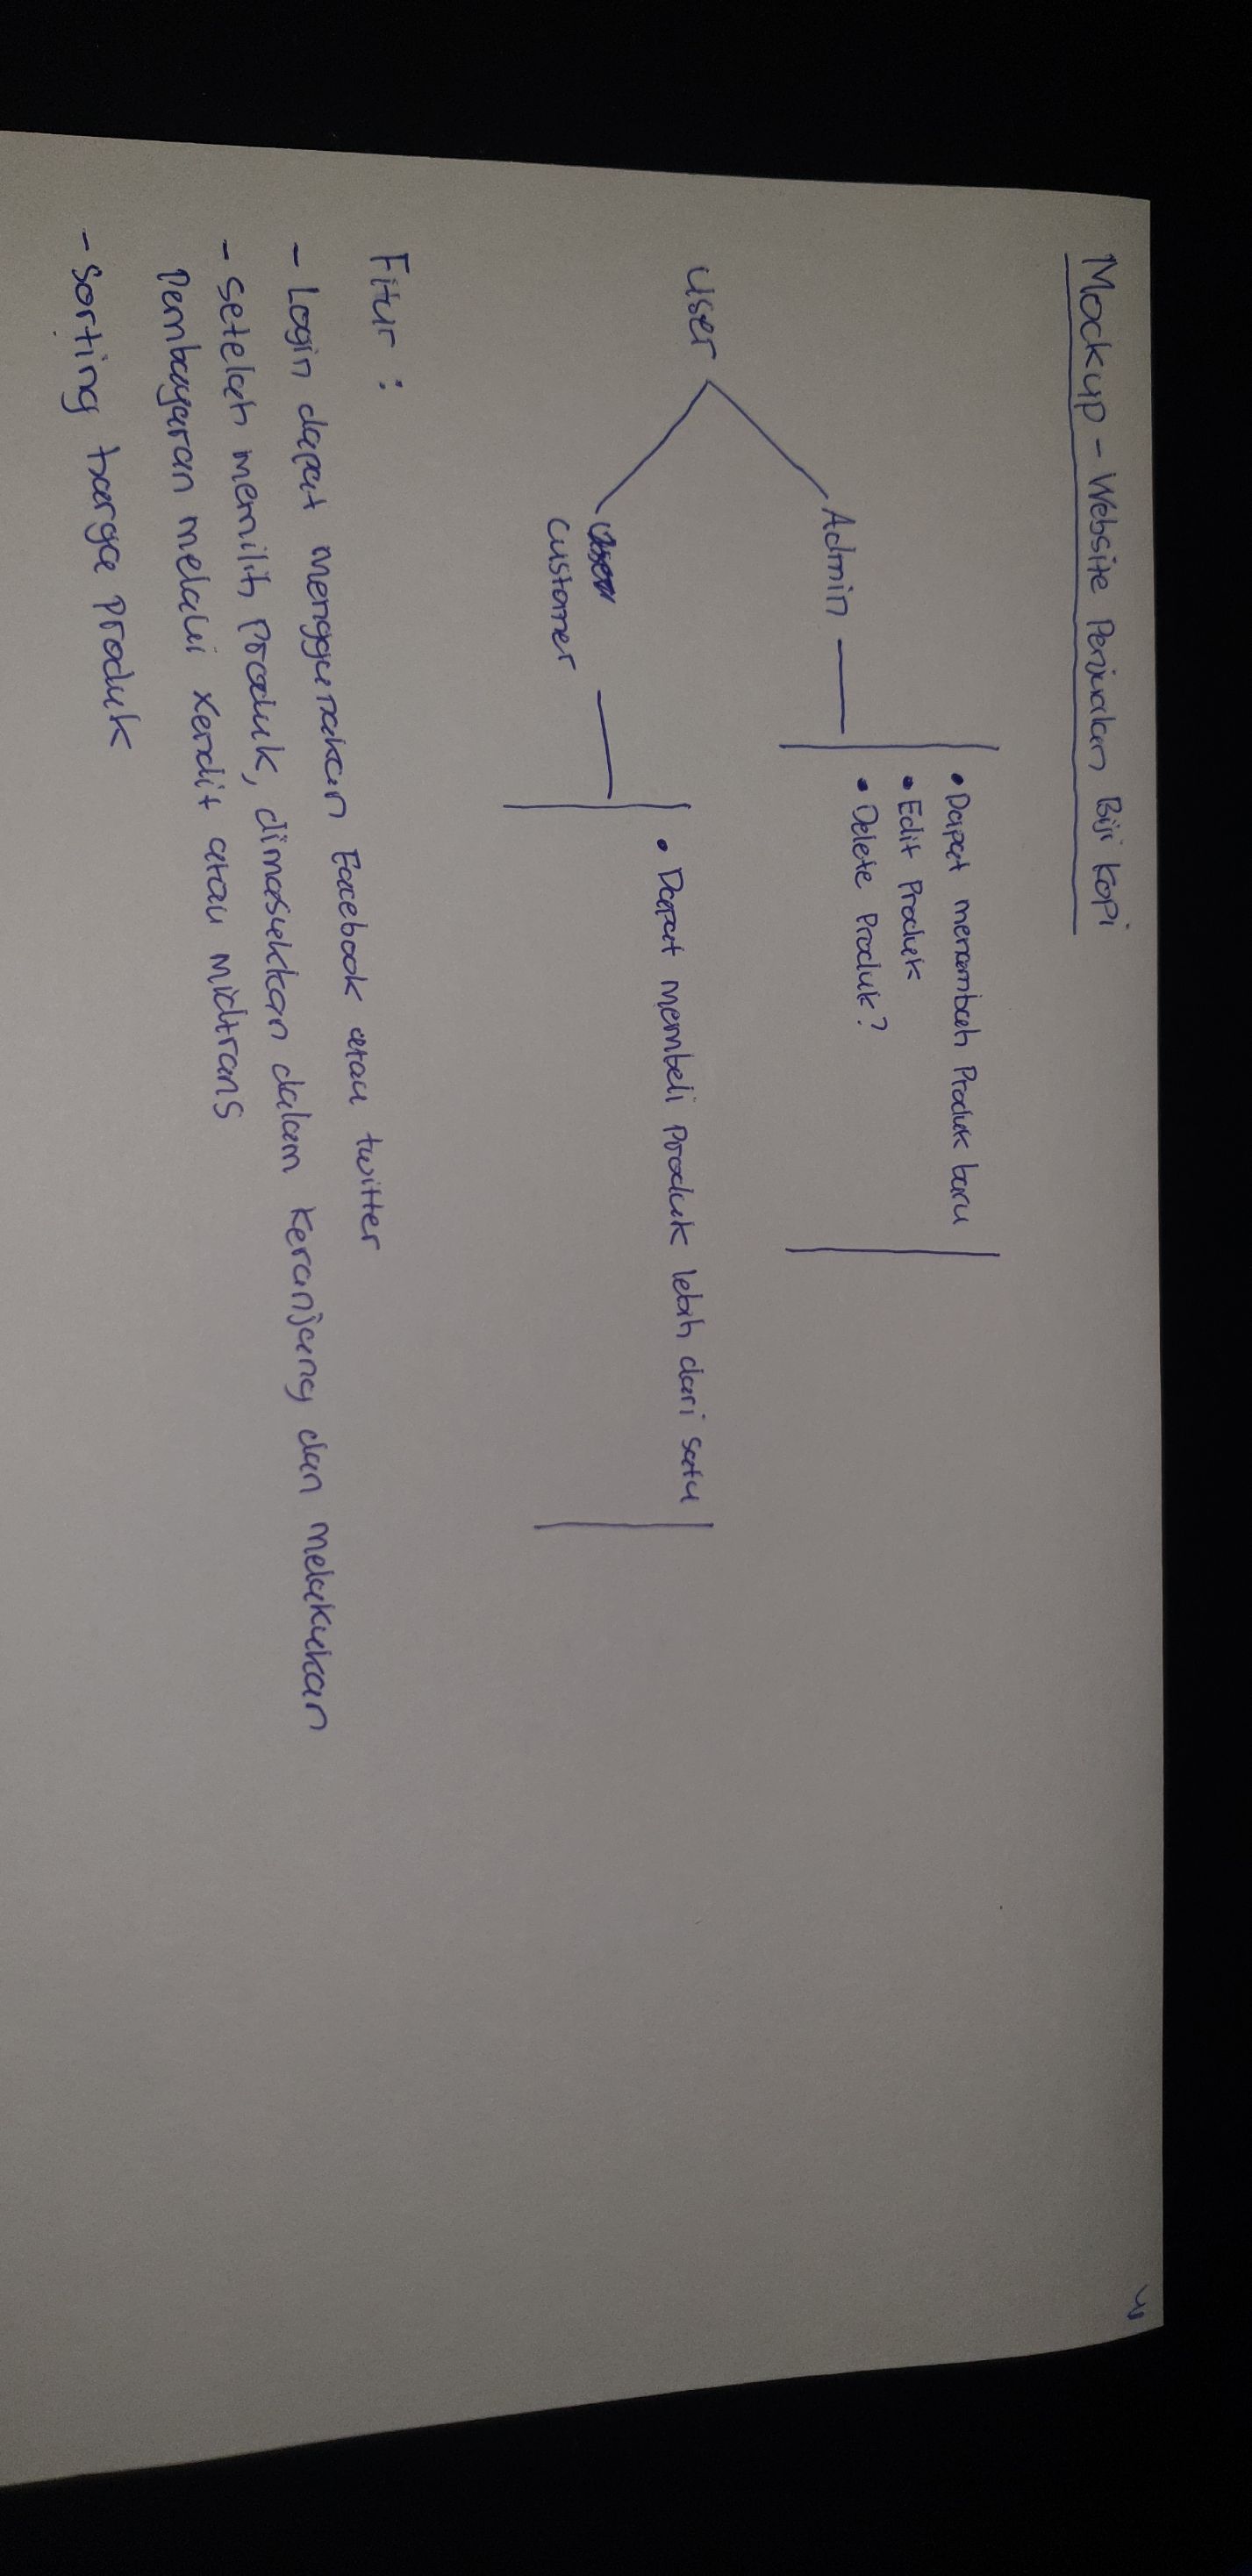 Mockup - Website Penjualan Biji Kopi
User
Admin
• Dapat menambah Produk baru
• Edit Produk
• Delete Produk?
Customer
• Dapat membeli Produk lebih dari satu
Fitur :
- Login dapat menggunakan Facebook atau twitter
- Setelah memilih Produk, dimasukkan dalam keranjang dan melakukan
Pembayaran melalui xendit atau midtrans
- Sorting harga Produk